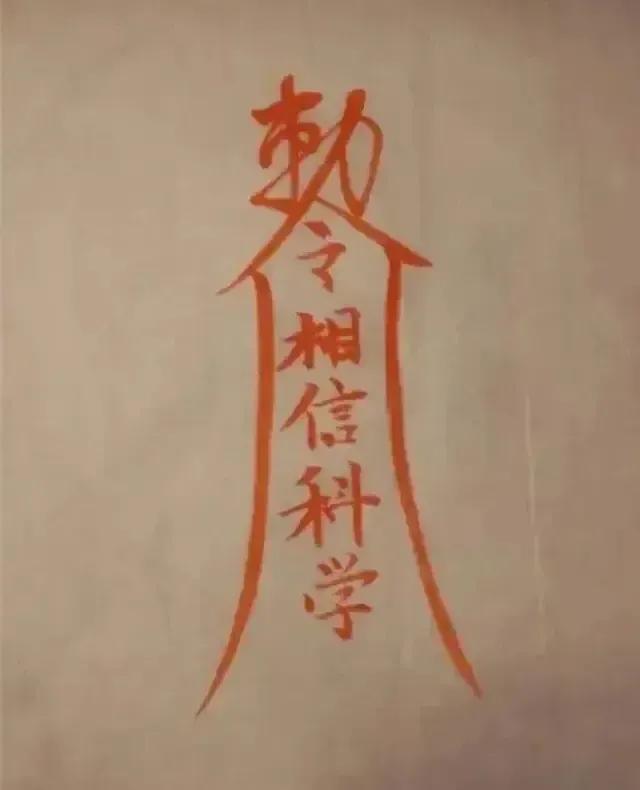 敕令相信科学